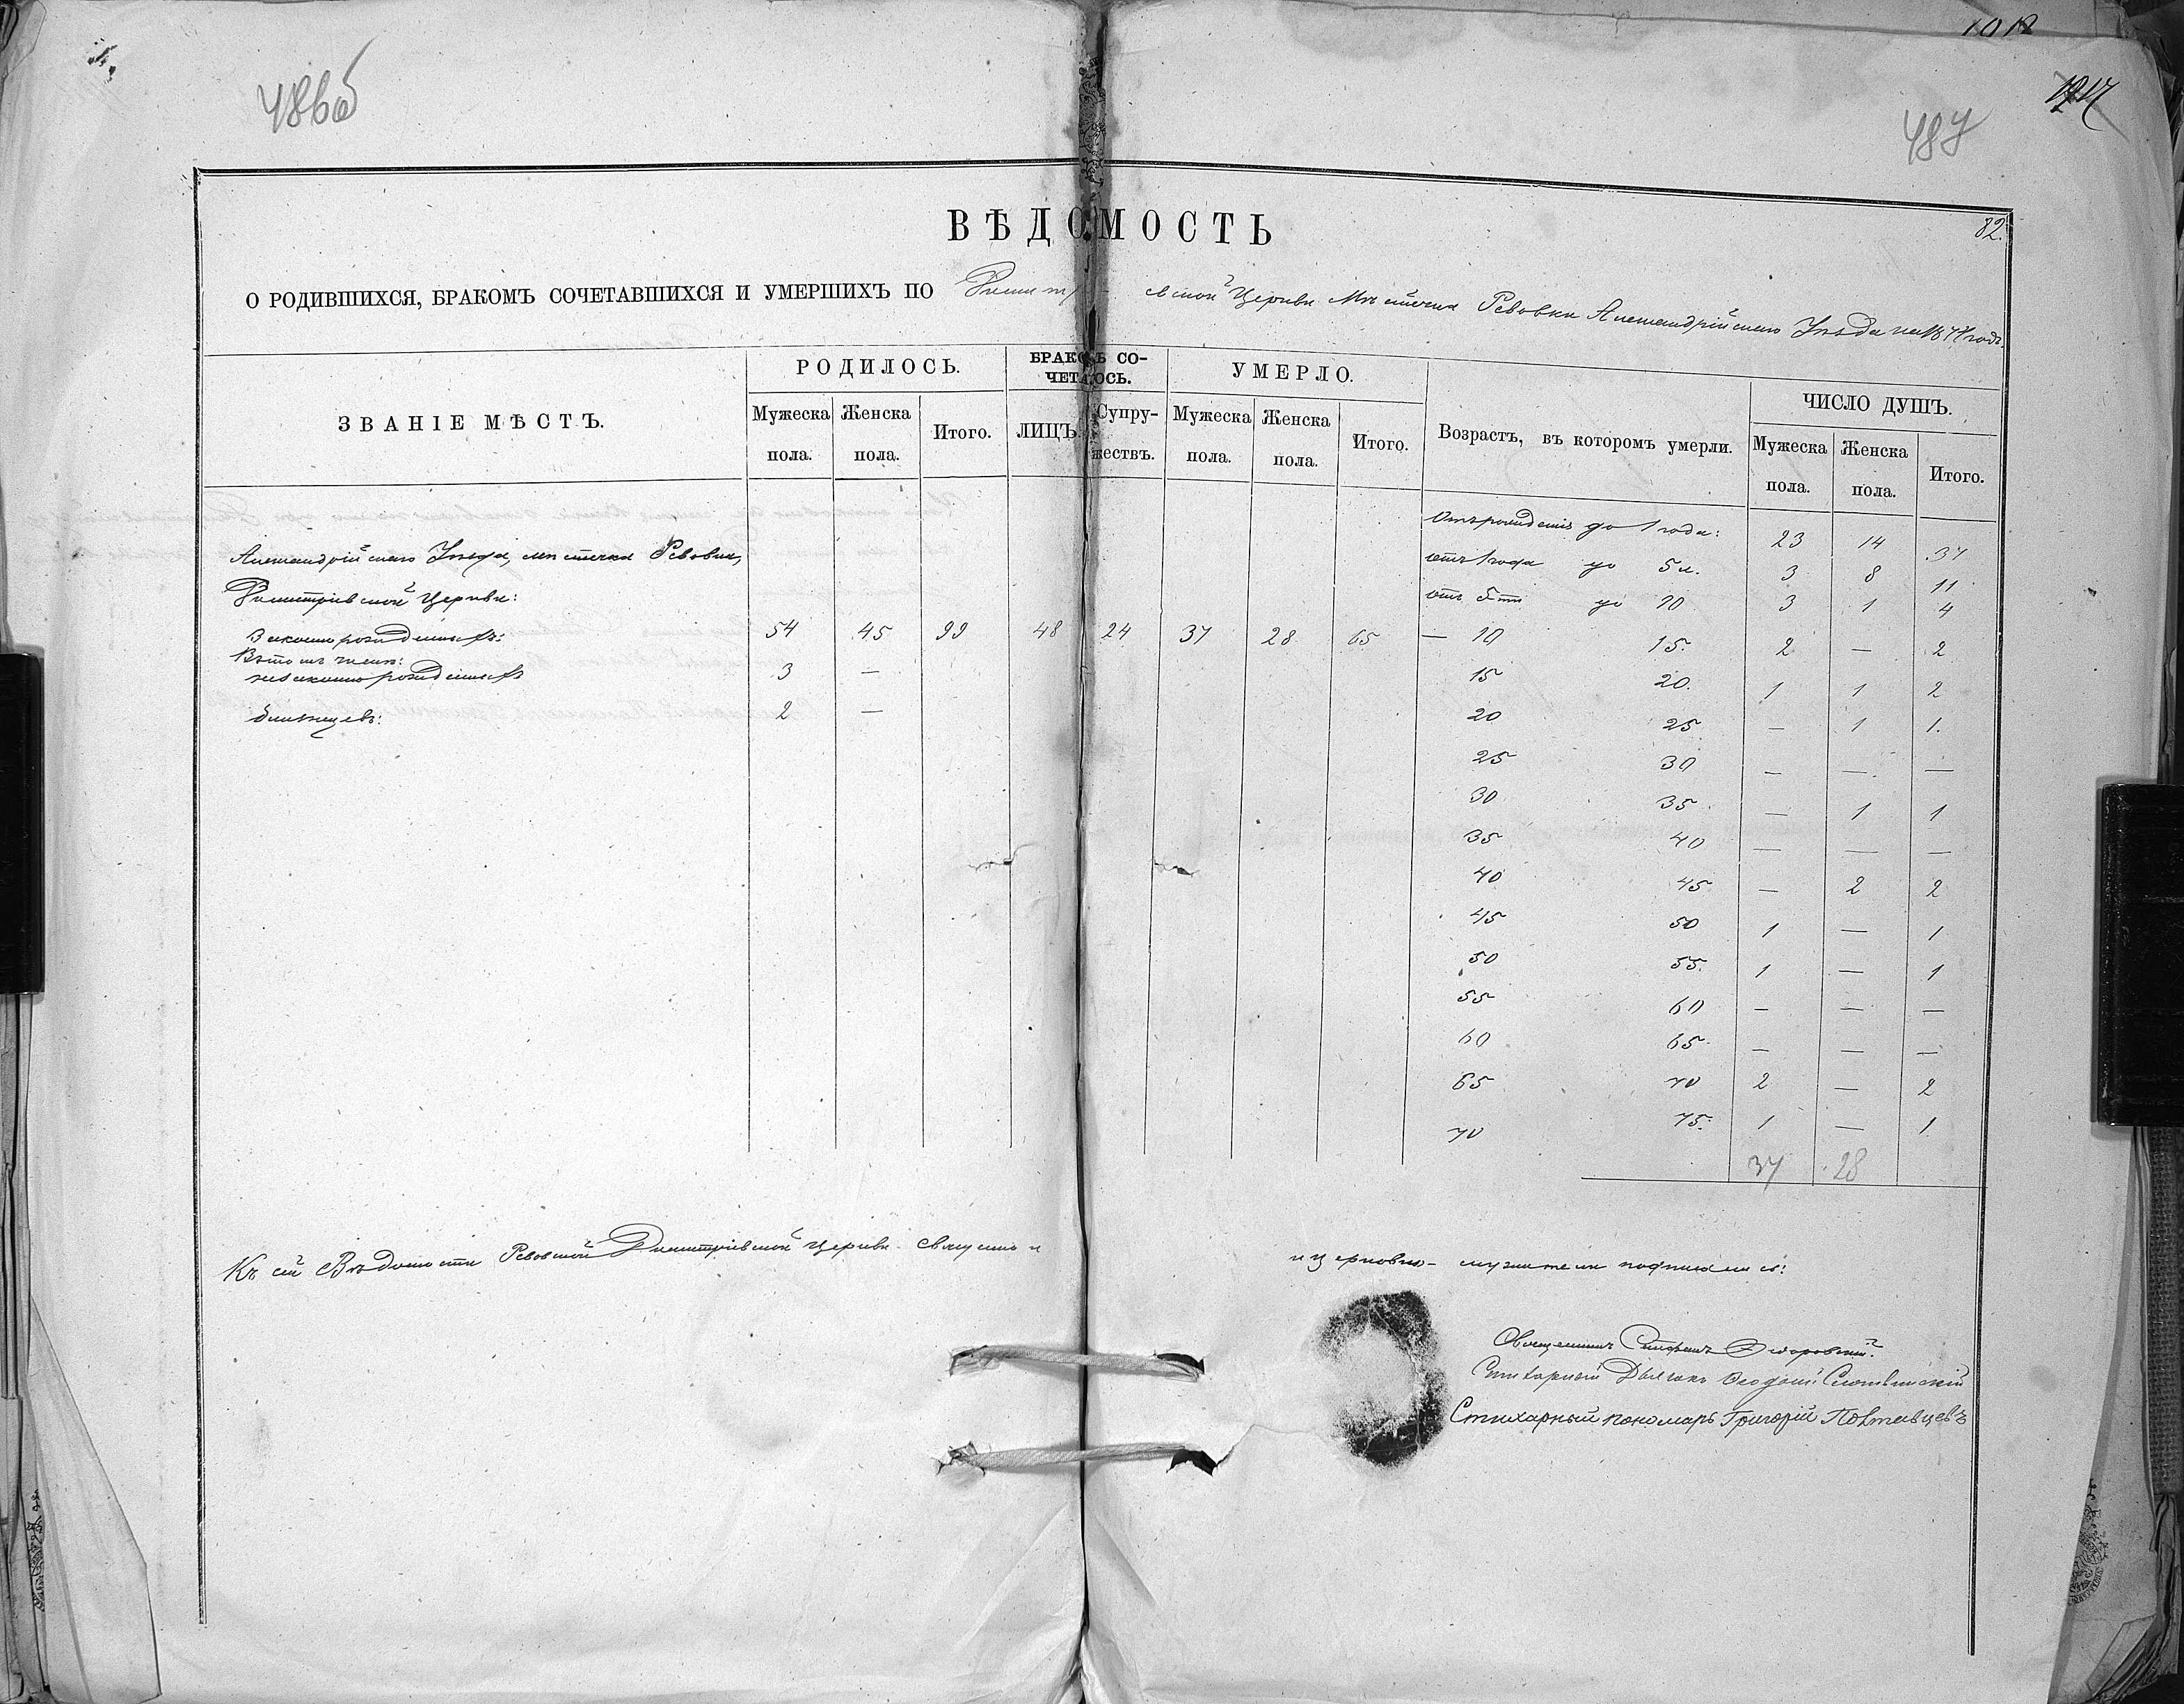 486об
487
82.
ВѢДОМОСТЬ
О РОДИВШИХСЯ, БРАКОМЪ СОЧЕТАВШИХСЯ И УМЕРШИХЪ ПО Димитріевской Церкви Мѣстечка Ревовки Александрійскаго Уѣзда на 1871 годъ.
ЗВАНІЕ МѢСТЪ. РОДИЛОСЬ. БРАКОМЪ СО-ЧЕТАЛОСЬ. УМЕРЛО. Возрастъ, въ которомъ умерли. ЧИСЛО ДУШЪ.
Мужеска пола. Женска пола. Итого. ЛИЦЪ. Супру-жествъ. Мужеска пола. Женска пола. Итого. Мужеска пола. Женска пола. Итого.
Отъ рожденія до 1 года: 23 14 37
Александрійскаго Уѣзда, мѣстечка Ревовки, отъ 1 года до 5 л. 3 8 11
Димитріевской Церкви: отъ 5-ти до 10 3 1 4
Законнорожденныхъ: 54 45 99 48 24 37 28 65 — 10 15. 2 — 2
Въ томъ числѣ:
незаконнорожденныхъ 3 — 15 20. 1 1 2
близнецевъ: 2 — 20 25 — 1 1.
25 30 — — —
30 35 — 1 1
35 40 — — —
40 45 — 2 2
45 50 1 — 1
50 55. 1 — 1
55 60 — — —
60 65 — — —
65 70 2 — 2
70 75. 1 — 1
37 28
Къ сей Вѣдомости Ревовской Димитріевской Церкви священно и
и церковно-служители подписались:
Священникъ Стефанъ
Стихарный Дьячокъ
Стихарный пономарь Григорій Полтавцевъ